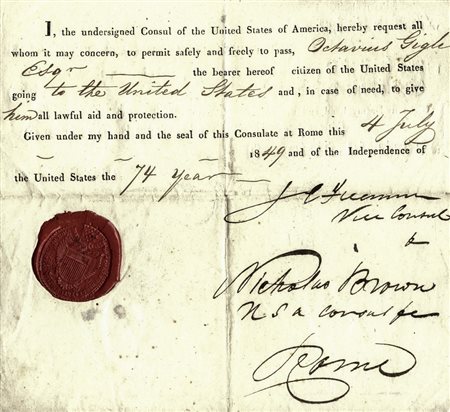 I, the undersigned Consul of the United States of America, hereby request all
whom it may concern, to permit safely and freely to pass, Octavius Gigli
Esqr the bearer hereof citizen of the United States
going to the United States and, in case of need, to give
him all lawful aid and protection.
Given under my hand and the seal of this Consulate at Rome this 4 July
1849 and of the Independence of
the United States the 74 Year
J C Freeman
Vice Consul
Nicholas Brown
U S a consul for
Rome